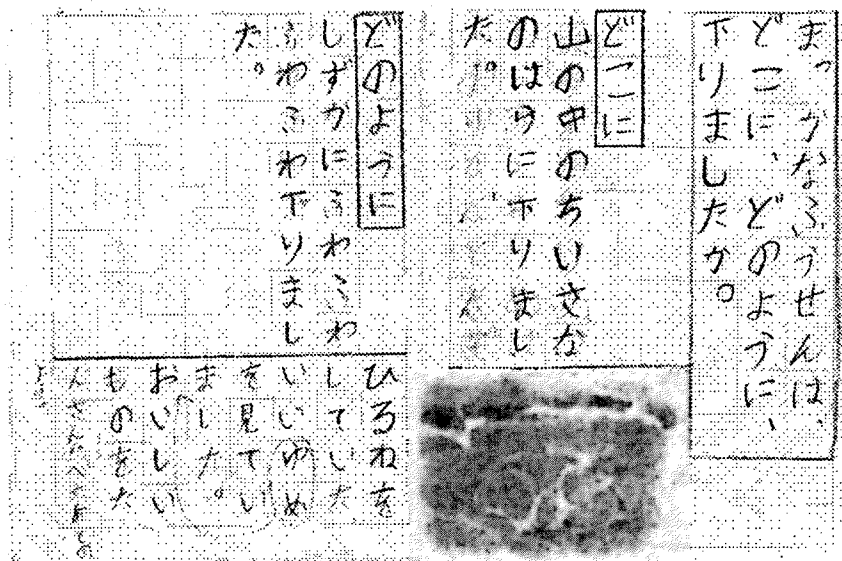 まっかなふうせんは、
どこに、どのように、
下りましたか。
どこに
山の中のちいさな
のはらに下りまし
た。
どのように
しずかにふわふわ
ふわふわ下りまし
た。
ひるねを
していた
いいゆめ
を見てい
ました。
おいしい
ものをた